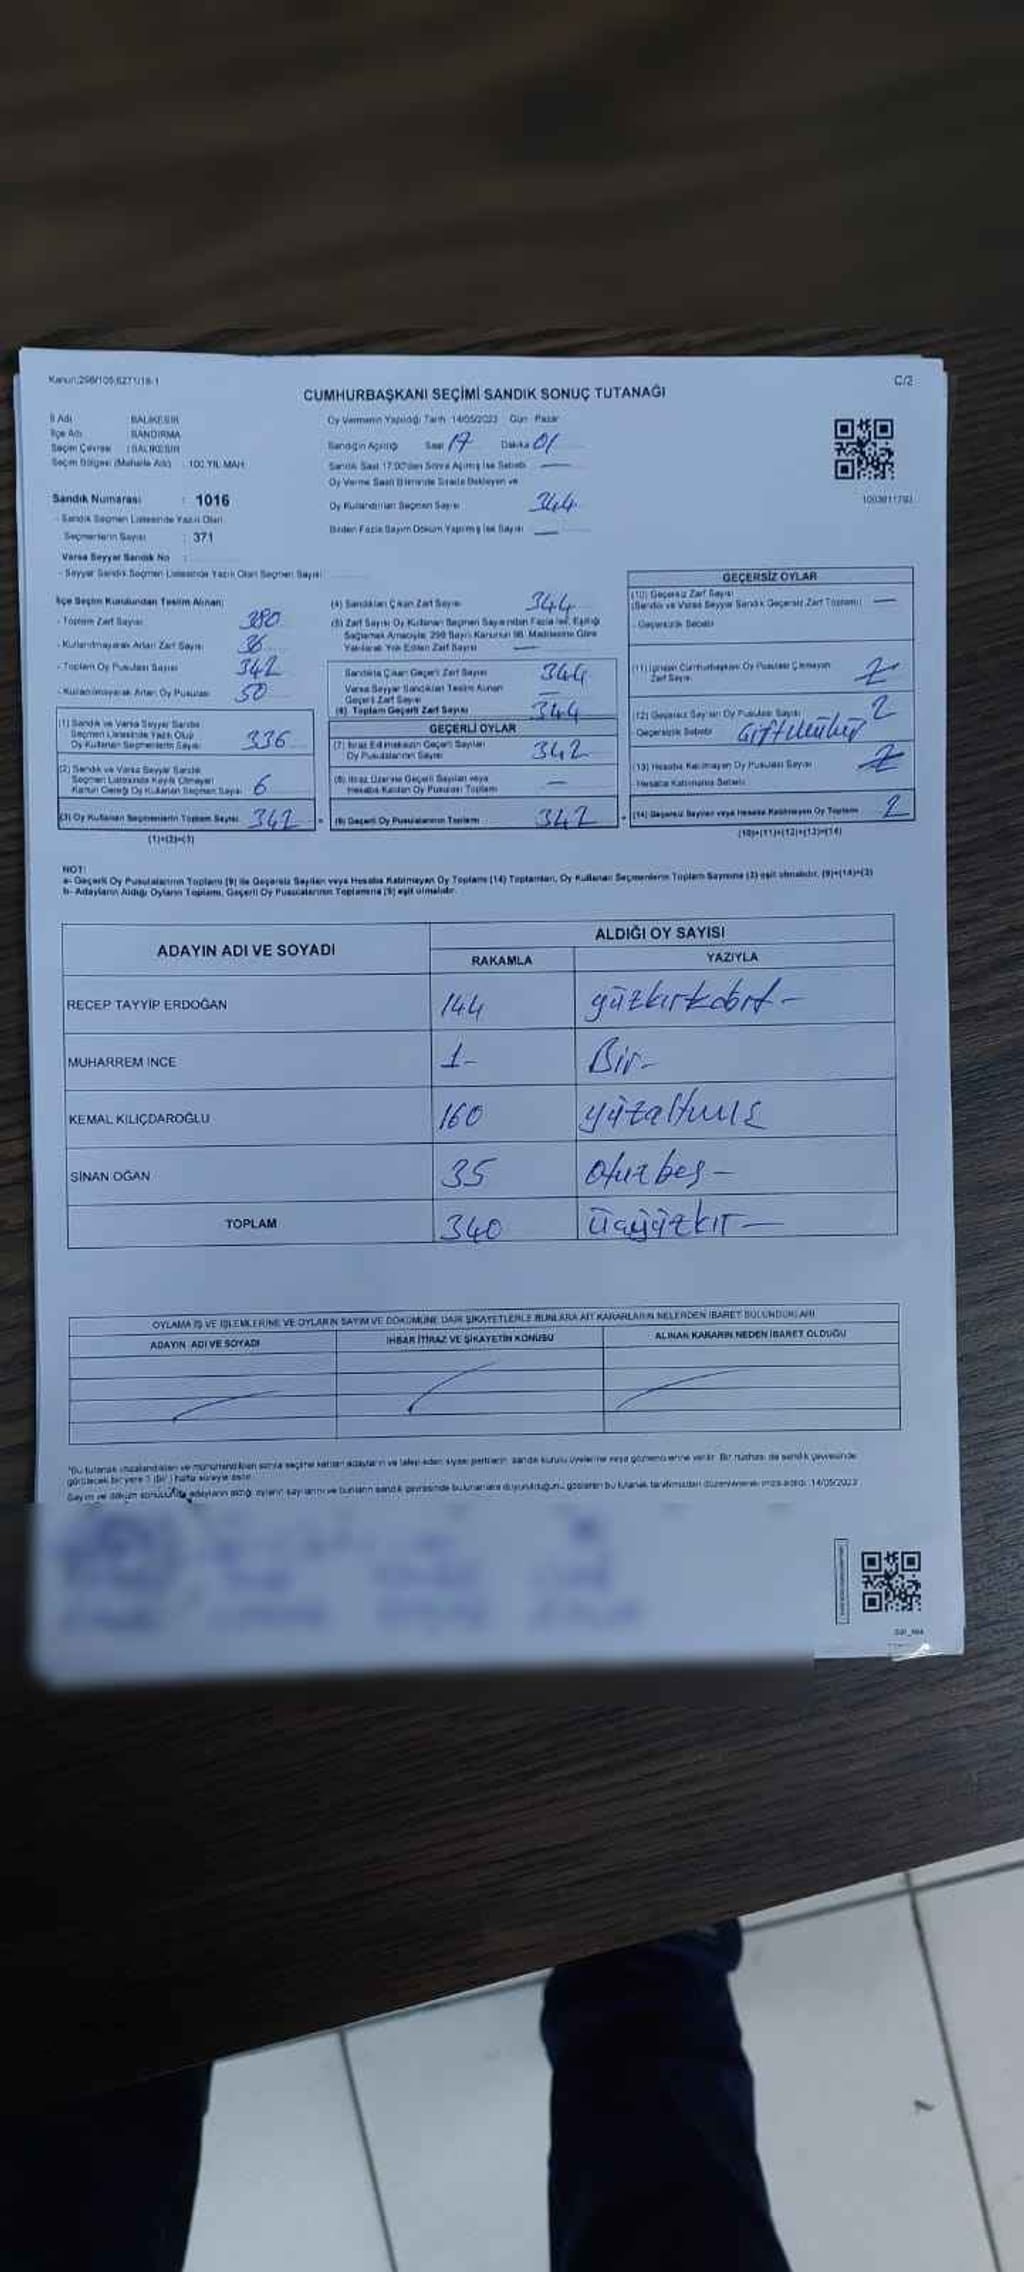 Kanun:298/105,6271/18-1
C/2
CUMHURBAŞKANI SEÇİMİ SANDIK SONUÇ TUTANAĞI
İl Adı : BALIKESİR
İlçe Adı : BANDIRMA
Seçim Çevresi : BALIKESİR
Seçim Bölgesi (Mahalle Adı) : 100.YIL MAH.
Sandık Numarası : 1016
- Sandık Seçmen Listesinde Yazılı Olan
Seçmenlerin Sayısı : 371
Varsa Seyyar Sandık No :
- Seyyar Sandık Seçmen Listesinde Yazılı Olan Seçmen Sayısı
Oy Vermenin Yapıldığı Tarih : 14/05/2023 Gün : Pazar
Sandığın Açıldığı Saat 17 Dakika 01
Sandık Saat 17:00'den Sonra Açılmış İse Sebebi
Oy Verme Saati Bitiminde Sırada Bekleyen ve
Oy Kullandırılan Seçmen Sayısı 344
Birden Fazla Sayım Döküm Yapılmış İse Sayısı
1003811793
İlçe Seçim Kurulundan Teslim Alınan:
- Toplam Zarf Sayısı 380
- Kullanılmayarak Artan Zarf Sayısı 36
- Toplam Oy Pusulası Sayısı 342
- Kullanılmayarak Artan Oy Pusulası 50
(1) Sandık ve Varsa Seyyar Sandık
Seçmen Listesinde Yazılı Olup
Oy Kullanan Seçmenlerin Sayısı 336
(2) Sandık ve Varsa Seyyar Sandık
Seçmen Listesinde Kayıtlı Olmayan
Kanun Gereği Oy Kullanan Seçmen Sayısı 6
(3) Oy Kullanan Seçmenlerin Toplam Sayısı 342
(1)+(2)=(3)
(4) Sandıktan Çıkan Zarf Sayısı 344
(5) Zarf Sayısı Oy Kullanan Seçmen Sayısından Fazla İse, Eşitliği
Sağlamak Amacıyla, 298 Sayılı Kanunun 98. Maddesine Göre
Yakılarak Yok Edilen Zarf Sayısı
Sandıkta Çıkan Geçerli Zarf Sayısı 344
Varsa Seyyar Sandıktan Teslim Alınan
Geçerli Zarf Sayısı
(6) Toplam Geçerli Zarf Sayısı 344
GEÇERLİ OYLAR
(7) İtiraz Edilmeksizin Geçerli Sayılan
Oy Pusulalarının Sayısı 342
(8) İtiraz Üzerine Geçerli Sayılan veya
Hesaba Katılan Oy Pusulası Toplamı
(9) Geçerli Oy Pusulalarının Toplamı 342
GEÇERSİZ OYLAR
(10) Geçersiz Zarf Sayısı
(Sandık ve Varsa Seyyar Sandık Geçersiz Zarf Toplamı)
- Geçersizlik Sebebi
(11) İçinden Cumhurbaşkanı Oy Pusulası Çıkmayan
Zarf Sayısı
(12) Geçersiz Sayılan Oy Pusulası Sayısı 2
Geçersizlik Sebebi Çiftmühür
(13) Hesaba Katılmayan Oy Pusulası Sayısı
Hesaba Katılmama Sebebi
(14) Geçersiz Sayılan veya Hesaba Katılmayan Oy Toplamı 2
(10)+(11)+(12)+(13)=(14)
NOT:
a- Geçerli Oy Pusulalarının Toplamı (9) ile Geçersiz Sayılan veya Hesaba Katılmayan Oy Toplamı (14) Toplamları, Oy Kullanan Seçmenlerin Toplam Sayısına (3) eşit olmalıdır. (9)+(14)=(3)
b- Adayların Aldığı Oyların Toplamı, Geçerli Oy Pusulalarının Toplamına (9) eşit olmalıdır.
ADAYIN ADI VE SOYADI ALDIĞI OY SAYISI
RAKAMLA YAZIYLA
RECEP TAYYİP ERDOĞAN 144 yüzkırkdört -
MUHARREM İNCE 1- Bir-
KEMAL KILIÇDAROĞLU 160 yüzaltmış
SİNAN OĞAN 35 otuzbeş -
TOPLAM 340 üçyüzkır -
OYLAMA İŞ VE İŞLEMLERİNE VE OYLARIN SAYIM VE DÖKÜMÜNE DAİR ŞİKAYETLERLE BUNLARA AİT KARARLARIN NELERDEN İBARET BULUNDUKLARI
ADAYIN ADI VE SOYADI İHBAR İTİRAZ VE ŞİKAYETİN KONUSU ALINAN KARARIN NEDEN İBARET OLDUĞU
*Bu tutanak imzalandıktan ve mühürlendikten sonra seçime katılan adayların ve talep eden siyasi partilerin, sandık kurulu üyelerine veya gözlemcilerine verilir. Bir nüshası da sandık çevresinde
görülecek bir yere 1 (bir) hafta süreyle asılır.
Sayım ve döküm sonucunda adayların aldığı oyların sayılarını ve bunların sandık çevresinde bulunanlara duyurulduğunu gösteren bu tutanak tarafımızdan düzenlenerek imza edildi. 14/05/2023